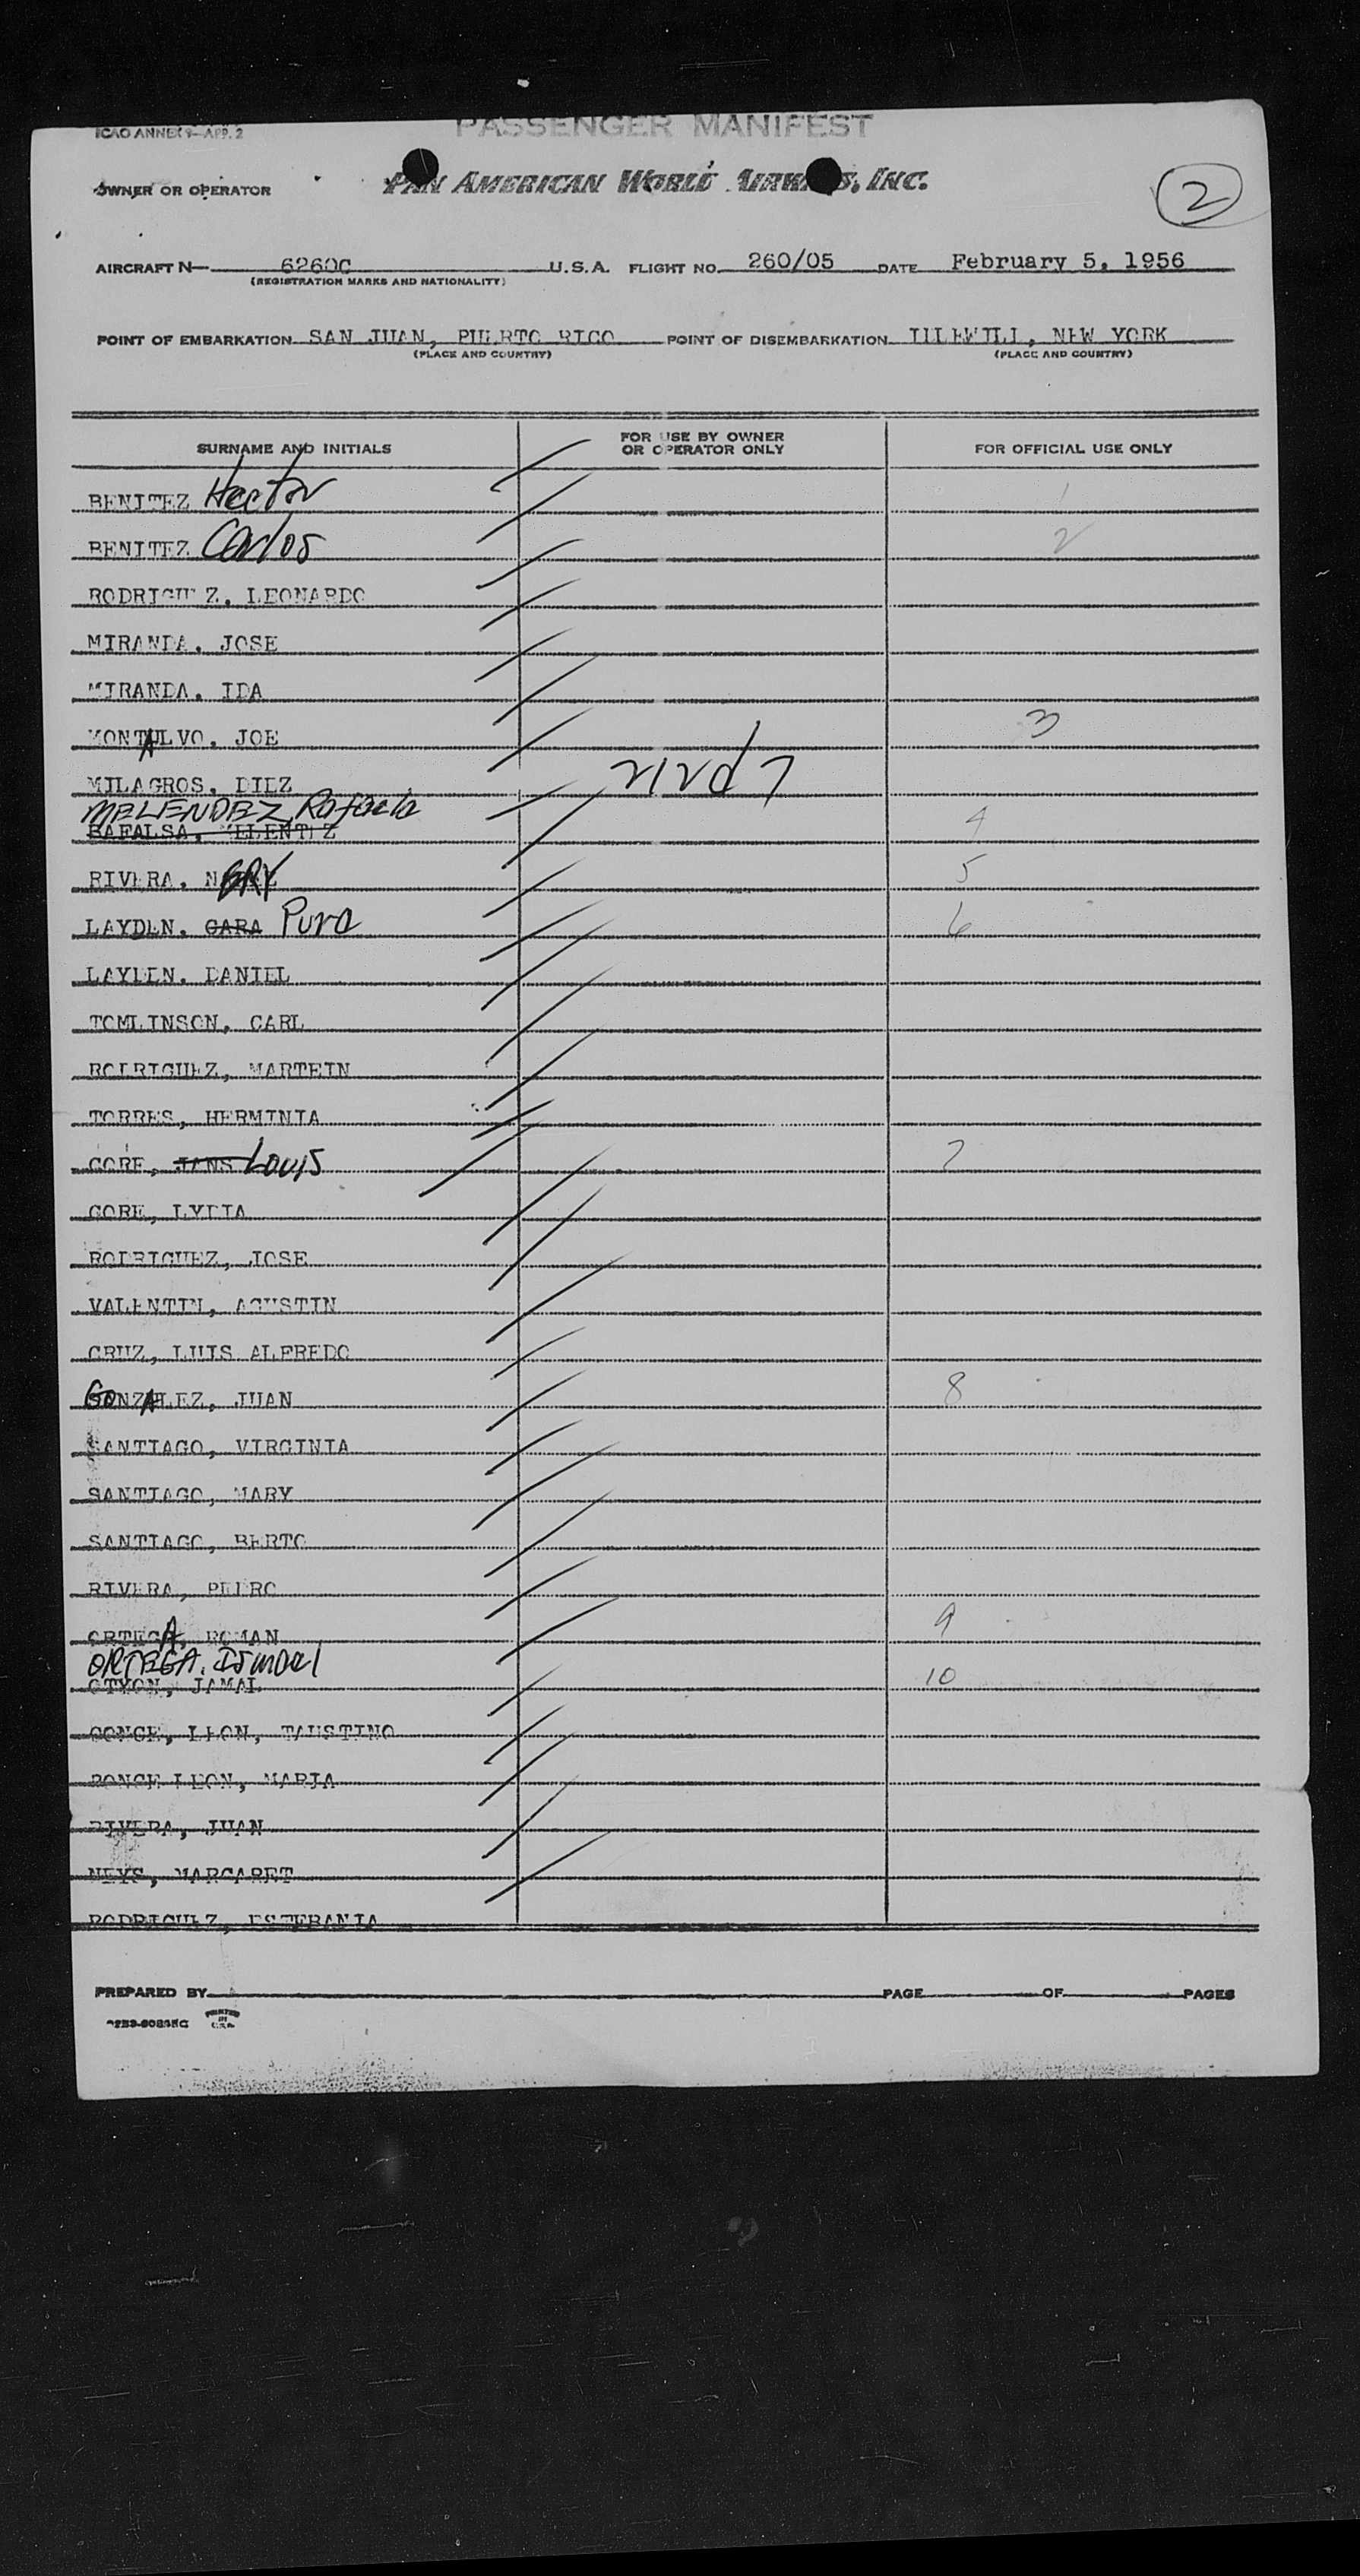 ICAO ANNEX 9—APP. 2
PASSENGER MANIFEST
OWNER OR OPERATOR PAN AMERICAN WORLD AIRWAYS, INC.
2
AIRCRAFT N— 6260C U.S.A. FLIGHT NO. 260/05 DATE February 5, 1956
(REGISTRATION MARKS AND NATIONALITY)
POINT OF EMBARKATION SAN JUAN, PUERTO RICO POINT OF DISEMBARKATION IDLEWILD, NEW YORK
(PLACE AND COUNTRY) (PLACE AND COUNTRY)
SURNAME AND INITIALS FOR USE BY OWNER OR OPERATOR ONLY FOR OFFICIAL USE ONLY
BENITEZ Hector 1
BENITEZ Carlos 2
RODRIGUEZ, LEONARDO
MIRANDA, JOSE
MIRANDA, IDA
MONTALVO, JOE 3
MILAGROS, DIEZ
MELENDEZ, Rafaela
RAFALSA, MELENDEZ 4
RIVERA, NERY 5
LAYDEN, CARA Pura 6
LAYDEN, DANIEL
TOMLINSON, CARL
RODRIGUEZ, MARTEIN
TORRES, HERMINIA
GORE, JANS Louis 7
GORE, LYDIA
RODRIGUEZ, JOSE
VALENTIN, AGUSTIN
CRUZ, LUIS ALFREDO
GONZALEZ, JUAN 8
SANTIAGO, VIRGINIA
SANTIAGO, MARY
SANTIAGO, BERTO
RIVERA, PEDRO
ORTEGA, ROMAN 9
ORTEGA, Ismael
OTYON, JAMAL 10
GONCE, LEON, FAUSTINO
PONCE LEON, MARIA
RIVERA, JUAN
NEYS, MARGARET
RODRIGUEZ, ESTEBANIA
PREPARED BY PAGE OF PAGES
PRINTED IN U.S.A.